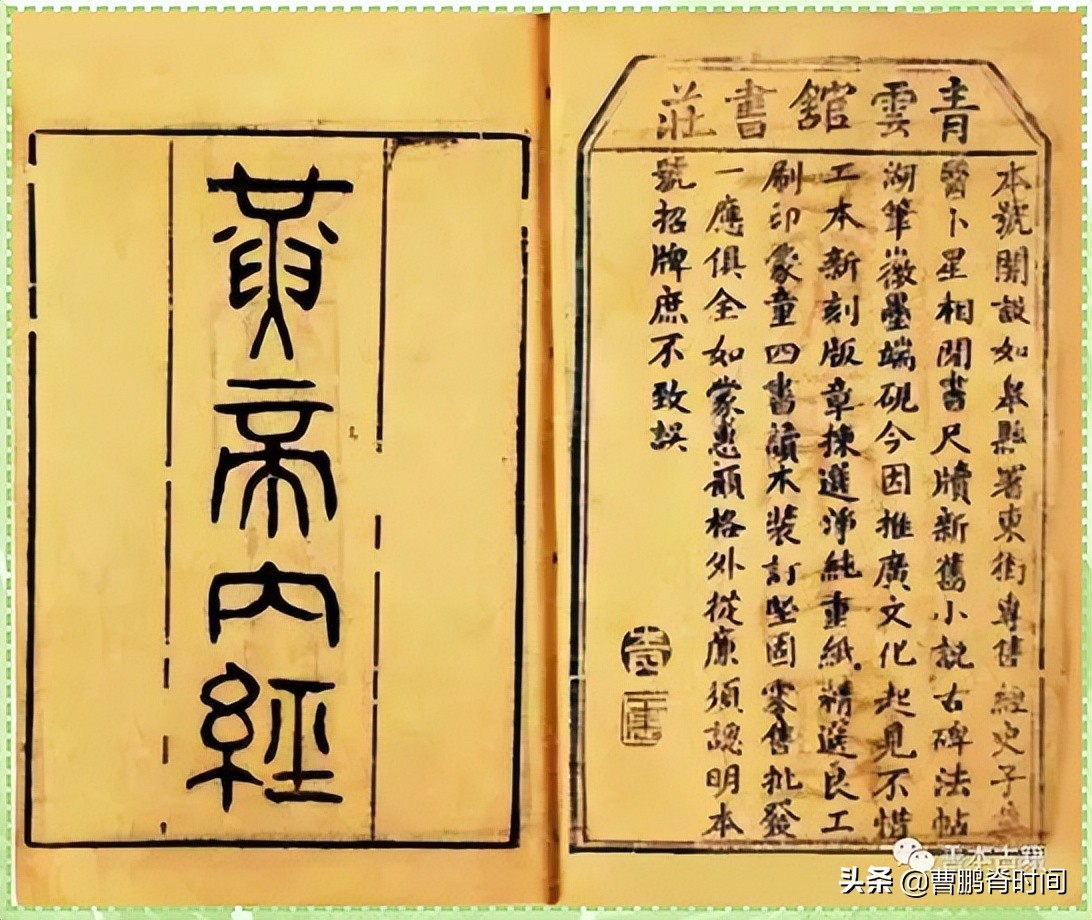 青雲舘書莊
本號開設如皋縣署東街專售經史子集
醫卜星相閒書尺牘新舊小説古碑法帖
湖筆徽墨端硯今因推廣文化起見不惜
工本新刻版章揀選淨純重紙精選良工
刷印蒙童四書讀本裝訂堅固零售批發
一應俱全如蒙惠顧格外從廉須認明本
號招牌庶不致誤
黃帝內經
善本古籍
头条 @曹鹏脊时间